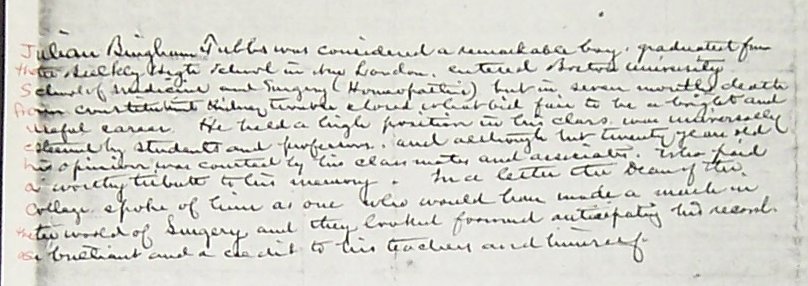 Julian Bingham Tubbs was considered a remarkable boy. graduated from
the Bulkley High School in New London. entered Boston University
School of Medicine and Surgery (Homeopathic) but in seven months death
from constitutent Kidney trouble closed what bid fair to be a bright and
useful career. He held a high position in his class, was universally
esteemed by students and professors. and although but twenty years old
his opinion was courted by his class mates and associates. Who paid
a worthy tribute to his memory. In a letter the Dean of the
College spoke of him as one who would have made a mark in
the world of Surgery and they looked forward anticipating his record
as brilliant and a credit to his teachers and himself.